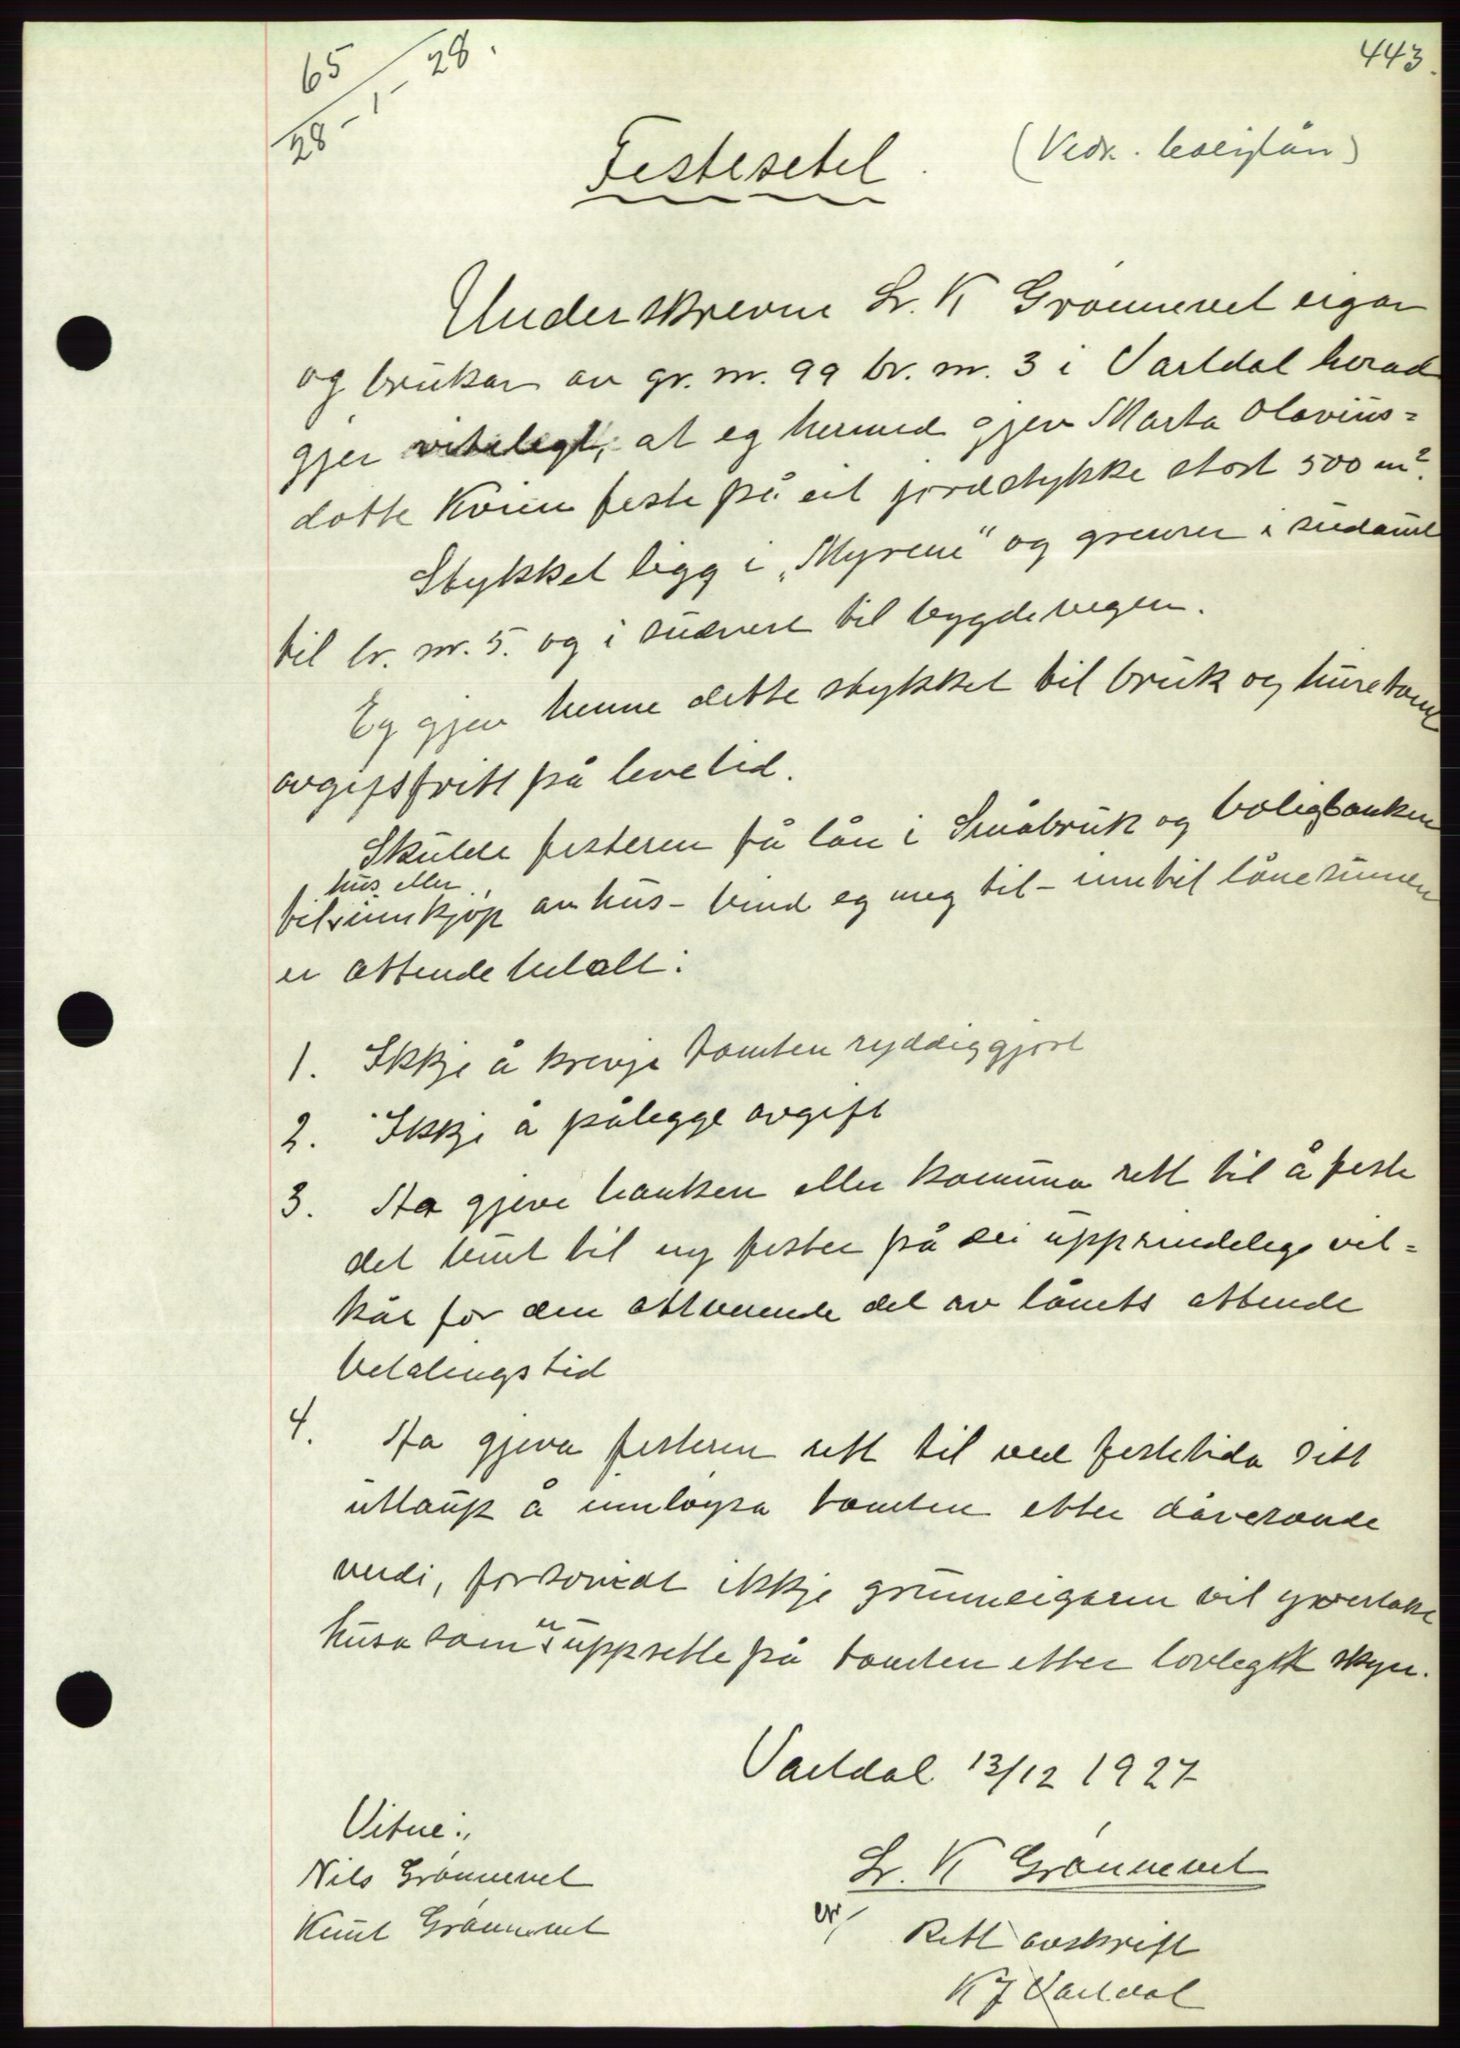 443.
65
28 - 1 - 28.
Festesetel.
(Vedr. boliglån)
Underskrevne Lr. K Grønnevet eigar
og brukar av gr. nr. 99 br. nr. 3 i Vartdal herad
gjer viteleg, at eg hermed gjev Marta Olavius=
dotte Kvien feste på eit jordstykke stort 500 m².
Stykket ligg i „Myrene" og grenser i sudaust
til br. nr. 5. og i sudvest til bygdevegen.
Eg gjev henne dette stykket til bruk og hustomt
avgifsfritt på levetid.
Skulde festeren få lån i Småbruk og boligbanken
hus eller
til innkjøp av hus - bind eg meg til - inntil lånesummen
er attendebetalt:
1. Ikkje å krevja tomten ryddiggjort
2. Ikkje å pålegge avgift
3. Aa gjeve banken eller kommuna rett til å feste
det burt til ny fester på dei upprindelege vil=
kår for den attverende del av lånets attende
betalingstid
4. Aa gjeva festeren rett til ved festetida sitt
utlaup å innløysa tomten etter dåverande
verdi, forsovidt ikkje grunneigaren vil yvertake
husa som er uppsette på tomten etter lovlegt skyn.
Vartdal 13/12 1927
Vitne:
Nils Grønnevet
Knut Grønnevet
Lr. K Grønnevet
Rett avskrift
K J Vartdal